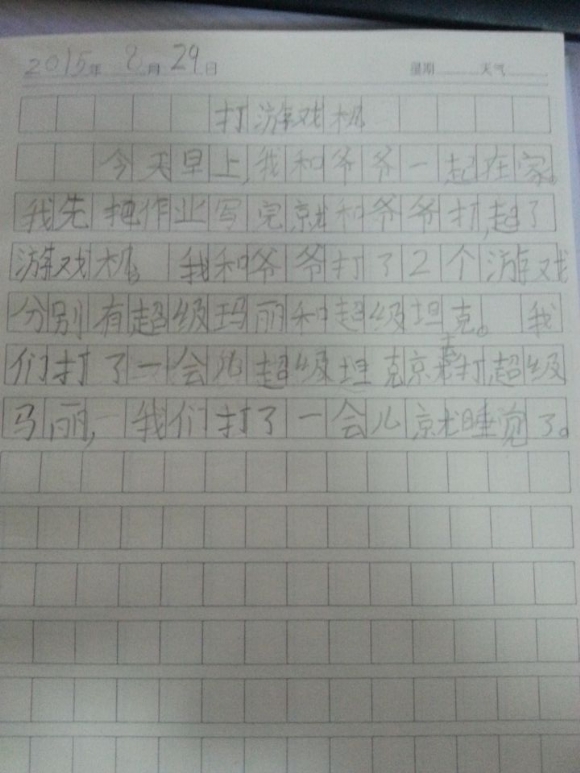 2015年 8月 29日 星期 天气
打游戏机
今天早上,我和爷爷一起在家。
我先把作业写完就和爷爷打,起了
游戏机。我和爷爷打了2个游戏
分别有超级玛丽和超级坦克。我
们打了一会儿超级坦克京去打,超级
马丽,我们打了一会儿就睡觉了。